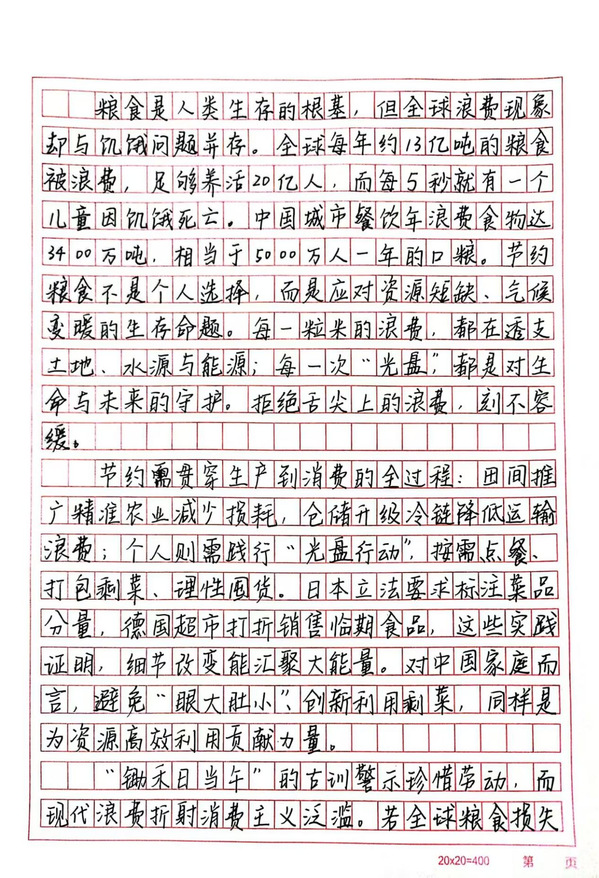 粮食是人类生存的根基，但全球浪费现象
却与饥饿问题并存。全球每年约13亿吨的粮食
被浪费，足够养活20亿人，而每5秒就有一个
儿童因饥饿死亡。中国城市餐饮年浪费食物达
3400万吨，相当于5000万人一年的口粮。节约
粮食不是个人选择，而是应对资源短缺、气候
变暖的生存命题。每一粒米的浪费，都在透支
土地、水源与能源；每一次“光盘”，都是对生
命与未来的守护。拒绝舌尖上的浪费，刻不容
缓。
节约需贯穿生产到消费的全过程：田间推
广精准农业减少损耗，仓储升级冷链降低运输
浪费；个人则需践行“光盘行动”，按需点餐、
打包剩菜、理性囤货。日本立法要求标注菜品
分量，德国超市打折销售临期食品，这些实践
证明，细节改变能汇聚大能量。对中国家庭而
言，避免“眼大肚小”、创新利用剩菜，同样是
为资源高效利用贡献力量。
“锄禾日当午”的古训警示珍惜劳动，而
现代浪费折射消费主义泛滥。若全球粮食损失
20x20=400 第 页